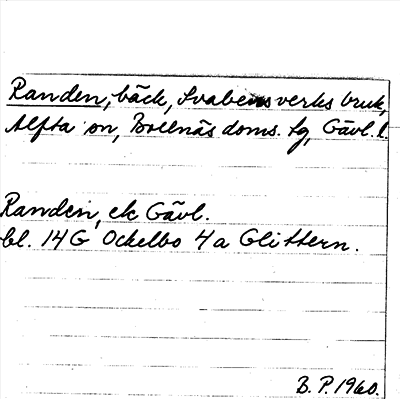 Randen, bäck, Svabensverks bruk,
Alfta sn, Bollnäs doms. tg, Gävl. l.
Randen, ek Gävl.
bl. 14G Ockelbo 4a Glittern.
B. P. 1960.